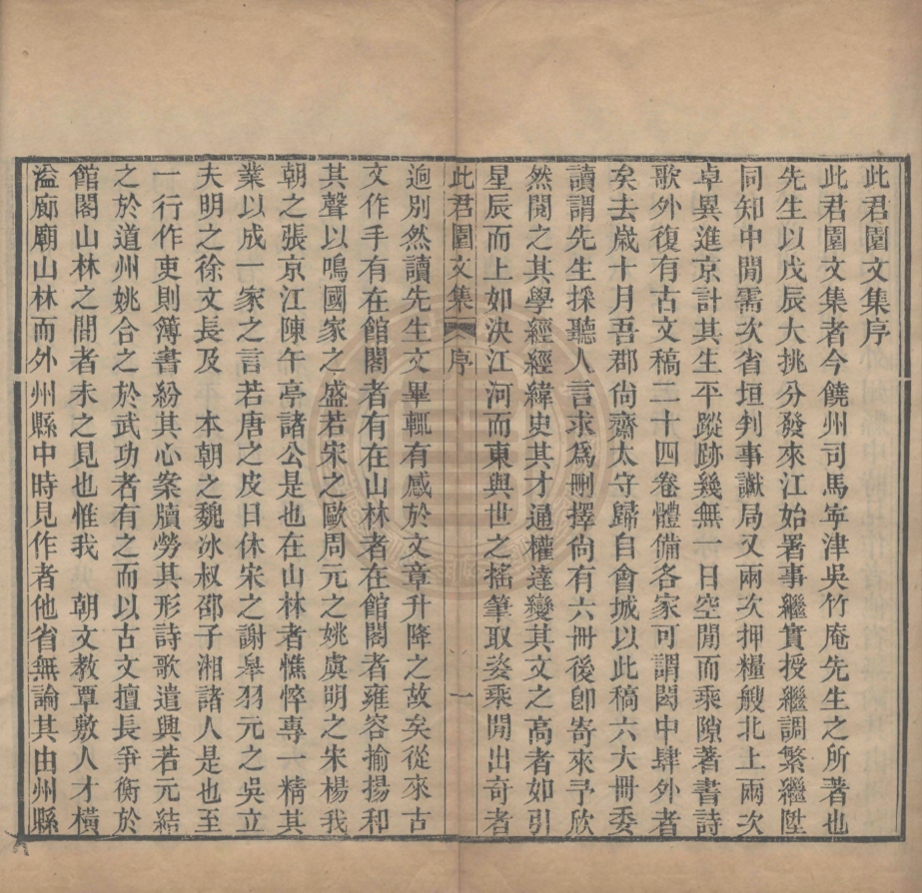 此君園文集序
此君園文集者今饒州司馬寧津吳竹庵先生之所著也
先生以戊辰大挑分發來江始署事繼實授繼調繁繼陞
同知中閒需次省垣判事讞局又兩次押糧艘北上兩次
卓異進京計其生平蹤跡幾無一日空閒而乘隙著書詩
歌外復有古文稿二十四卷體備各家可謂閎中肆外者
矣去歲十月吾郡尙齋太守歸自會城以此稿六大冊委
讀謂先生採聽人言求爲刪擇尙有六冊後卽寄來予欣
然閱之其學經經緯史其才通權達變其文之高者如引
星辰而上如決江河而東與世之搖筆取姿乘閒出奇者
此君園文集 序 一
逈別然讀先生文畢輒有感於文章升降之故矣從來古
文作手有在館閣者有在山林者在館閣者雍容揄揚和
其聲以鳴國家之盛若宋之歐周元之姚虞明之朱楊我
朝之張京江陳午亭諸公是也在山林者憔悴專一精其
業以成一家之言若唐之皮日休宋之謝皋羽元之吳立
夫明之徐文長及 本朝之魏冰叔邵子湘諸人是也至
一行作吏則簿書紛其心案牘勞其形詩歌遣興若元結
之於道州姚合之於武功者有之而以古文擅長爭衡於
館閣山林之閒者未之見也惟我 朝文教覃敷人才橫
溢廊廟山林而外州縣中時見作者他省無論其由州縣